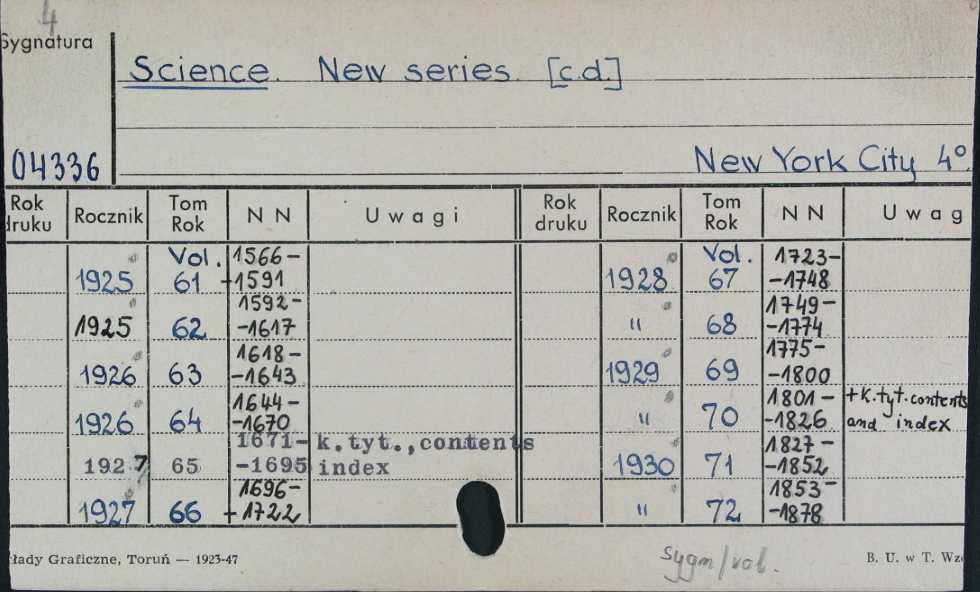 4
Sygnatura
Science. New series. [c.d.]
04336
New York City 4°
Rok druku Rocznik Tom Rok N N Uwagi Rok druku Rocznik Tom Rok N N Uwag
1925 Vol. 61 1566- +1591
1925 62 1592- -1617
1926 63 1618- -1643
1926 64 1644- -1670
1927 65 1671- -1695 k.tyt., contents index
1927 66 1696- +1722
1928 Vol. 67 1723- -1748
" 68 1749- -1774
1929 69 1775- -1800
" 70 1801- -1826 + k.tyt. contents and index
1930 71 1827- -1852
" 72 1853- -1878
łady Graficzne, Toruń — 1923-47
sygn/vol.
B. U. w T. Wz